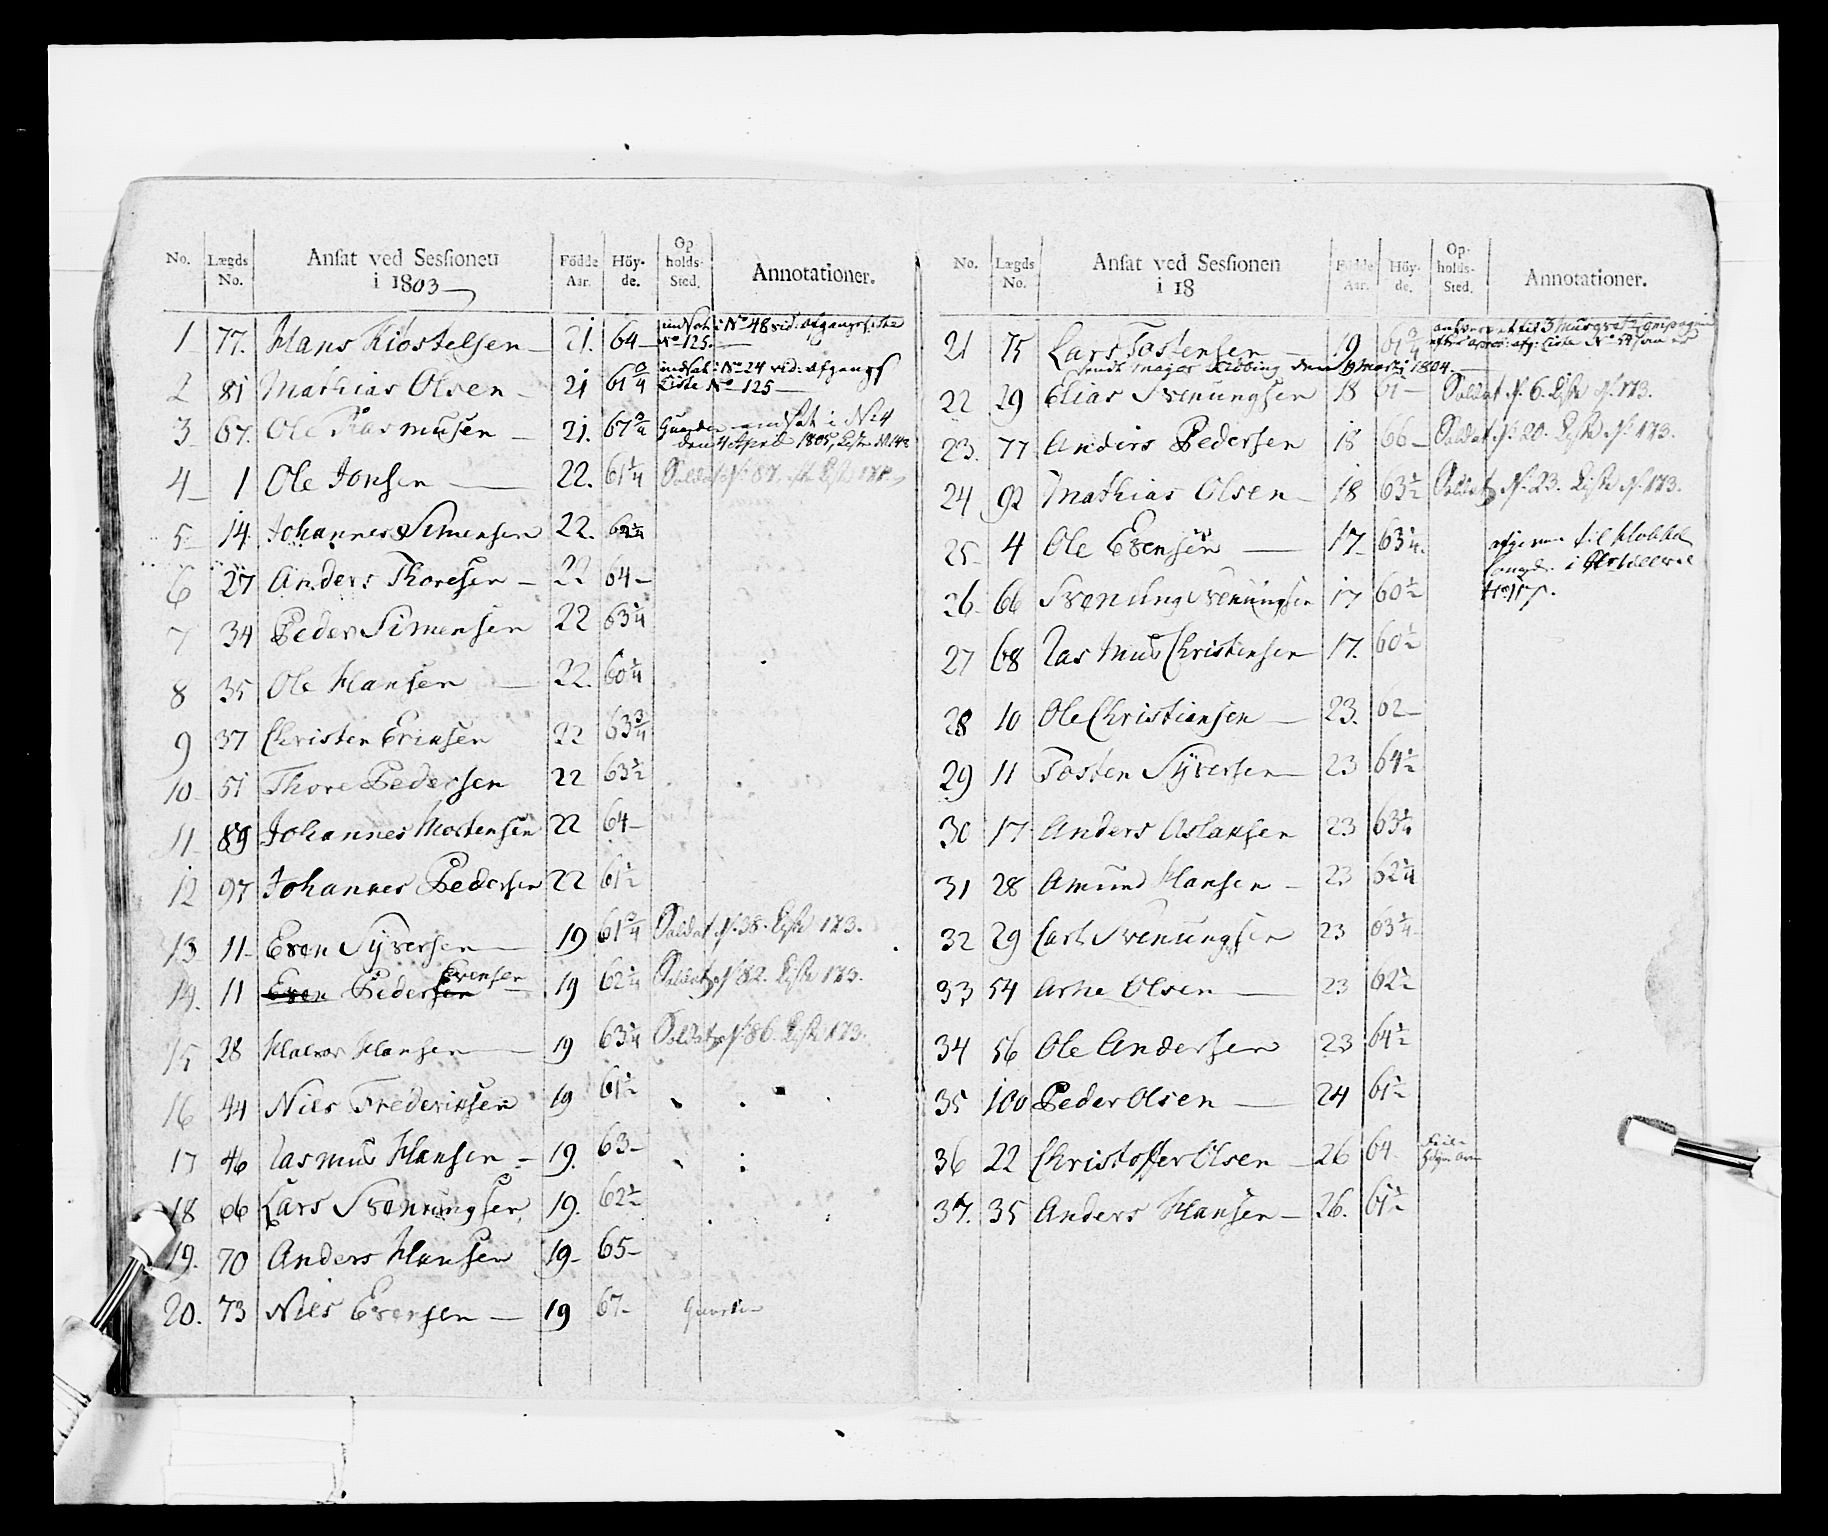 No. Lægds No. Ansat ved Sessionen i 1803 Födde Aar. Höy-de. Op-holds-Sted. Annotationer.
1 77. Hans Kiostelsen 21. 64 indsat i No 48 vid: afgangs Liste No 125.
2 81 Mathias Olsen 21 61 3/4 indsat i No 24 vid: afgangs Liste No 125
3 67. Ole Rasmusen 21. 67 3/4 Guarden indsat i No 4 den 4 April 1805, Liste
4 1 Ole Jonsen 22. 61 1/4 Soldat No 87. Liste
5 14. Johannes Simensen 22. 62 1/4
6 27 Anders Thoresen 22 64
7 34 Peder Simensen 22 63 1/4
8 35 Ole Hansen 22. 60 1/4
9 37 Christen Ericksen 22 63 3/4
10 51 Thore Pedersen 22 63 1/2
11 89 Johannes Mortensen 22 64
12 97 Johannes Pedersen 22 61 1/2
13 11 Even Syversen 19 61 3/4 Soldat No. 38. Liste 173.
14. 11 Even Pedersen Evensen 19 62 1/4 Soldat No 82. Liste 173.
15 28 Halvor Hansen 19 63 1/4 Soldat No 86. Liste 173.
16 44 Niels Frederiksen 19 61 1/2
17 46 Rasmus Hansen 19. 63
18 66 Lars Svenningsen 19. 62 1/2
19. 70 Anders Hansen 19 65
20. 73 Niels Evensen 19 67 Guarden
No. Lægds No. Ansat ved Sessionen i 18 Födde Aar. Höy-de. Op-holds-Sted. Annotationer.
21 75 Lars Tostensen 19 61 3/4 til 3 Musqvet Compagnie afg: Liste No 54
Major den 9 Marti 1804
22 29 Elias Svenungsen 18 61 Soldat No. 6. Liste No. 173.
23. 77 Anders Pedersen 18 66 Soldat No 20. Liste No. 173.
24 92 Mathias Olsen 18 63 1/2 Soldat No. 23. Liste No. 173.
25 4 Ole Evensen 17 63 1/4 til i
26 66 Svenung Svenungsen 17 60 1/2
27 68 Rasmus Christensen 17. 60 1/2
28 10 Ole Christiansen 23. 62
29 11 Tosten Syversen 23 64 1/2
30 17 Anders Aslaksen 23 63 1/4
31 28 Amund Hansen 23 62 1/4
32 29 Carl Svenungsen 23 63 1/4
33 54 Arne Olsen 23 62 1/2
34 56 Ole Andersen 23 64 1/2
35 100 Peder Olsen 24 61 1/2
36 22 Christoffer Olsen 26 64
37. 35 Anders Hansen 26. 61 1/2